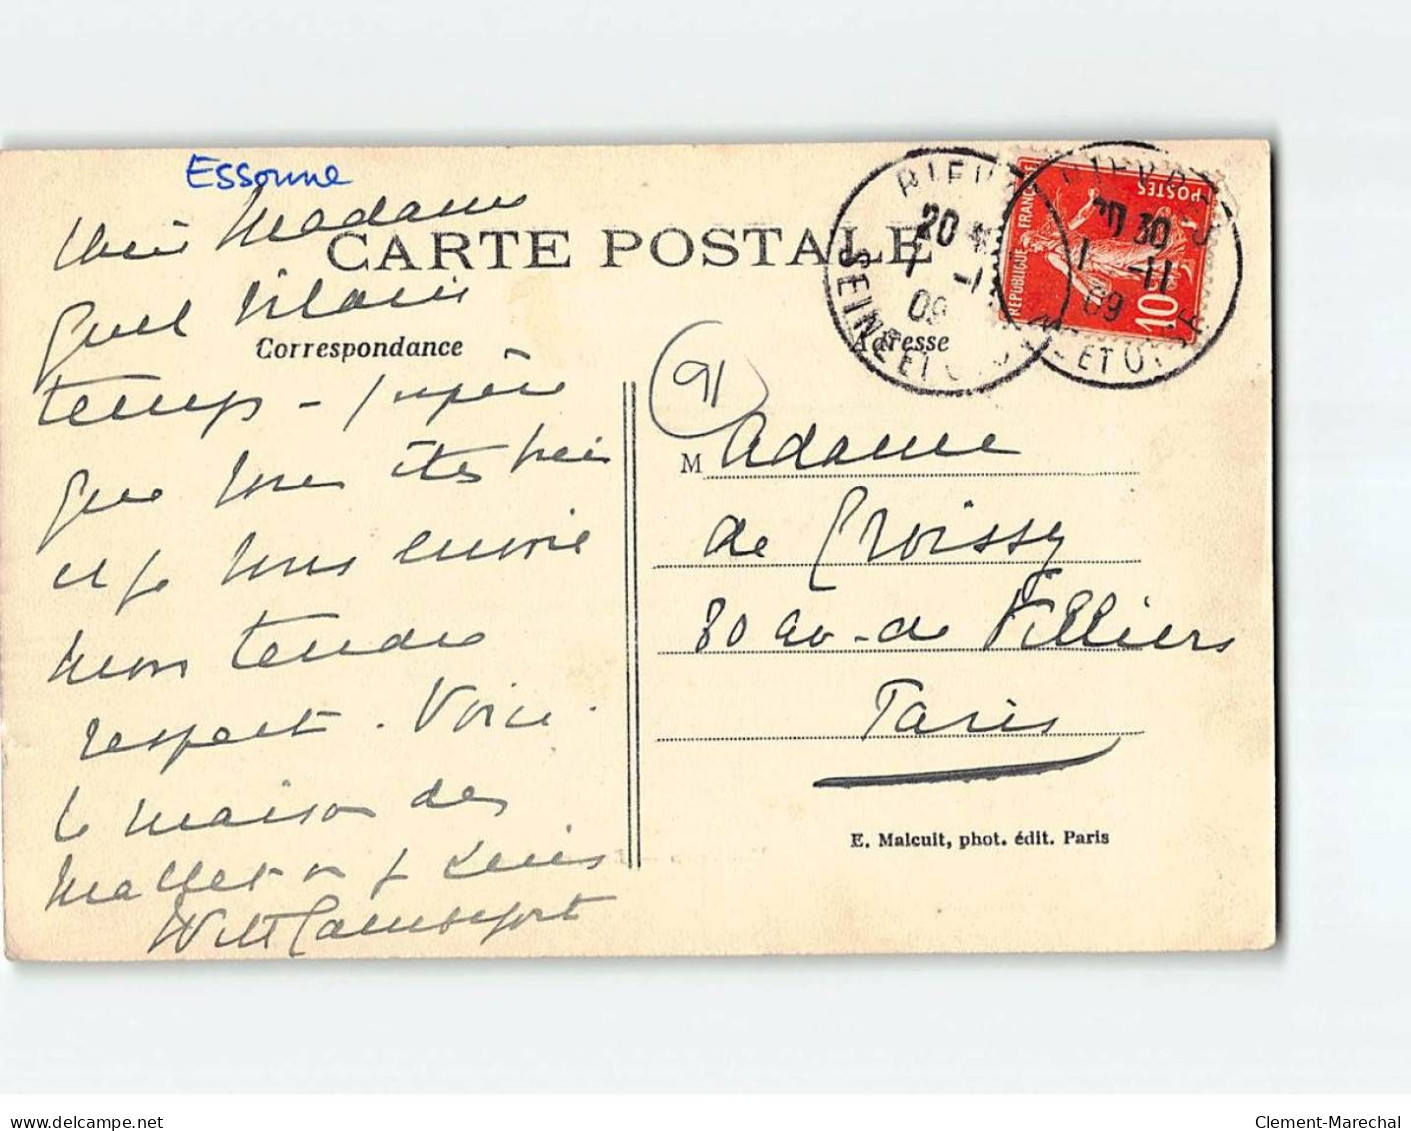 Essonne
Chère Madame
CARTE POSTALE
Quel vilain
Correspondance
temps - j'espère
que vous êtes bien
et je vous envoie
mon tendre
respect. Voici
la maison des
Mallet
BIEV
20
1 -11
09
SEINE ET OISE
BIEVRES
30
1 -11
09
SEINE ET OISE
RÉPUBLIQUE FRANÇAISE
POSTES
10
Adresse
91
Madame
de Croissy
80 av. de Villiers
Paris
E. Malcuit, phot. édit. Paris
www.delcampe.net
Clement-Marechal